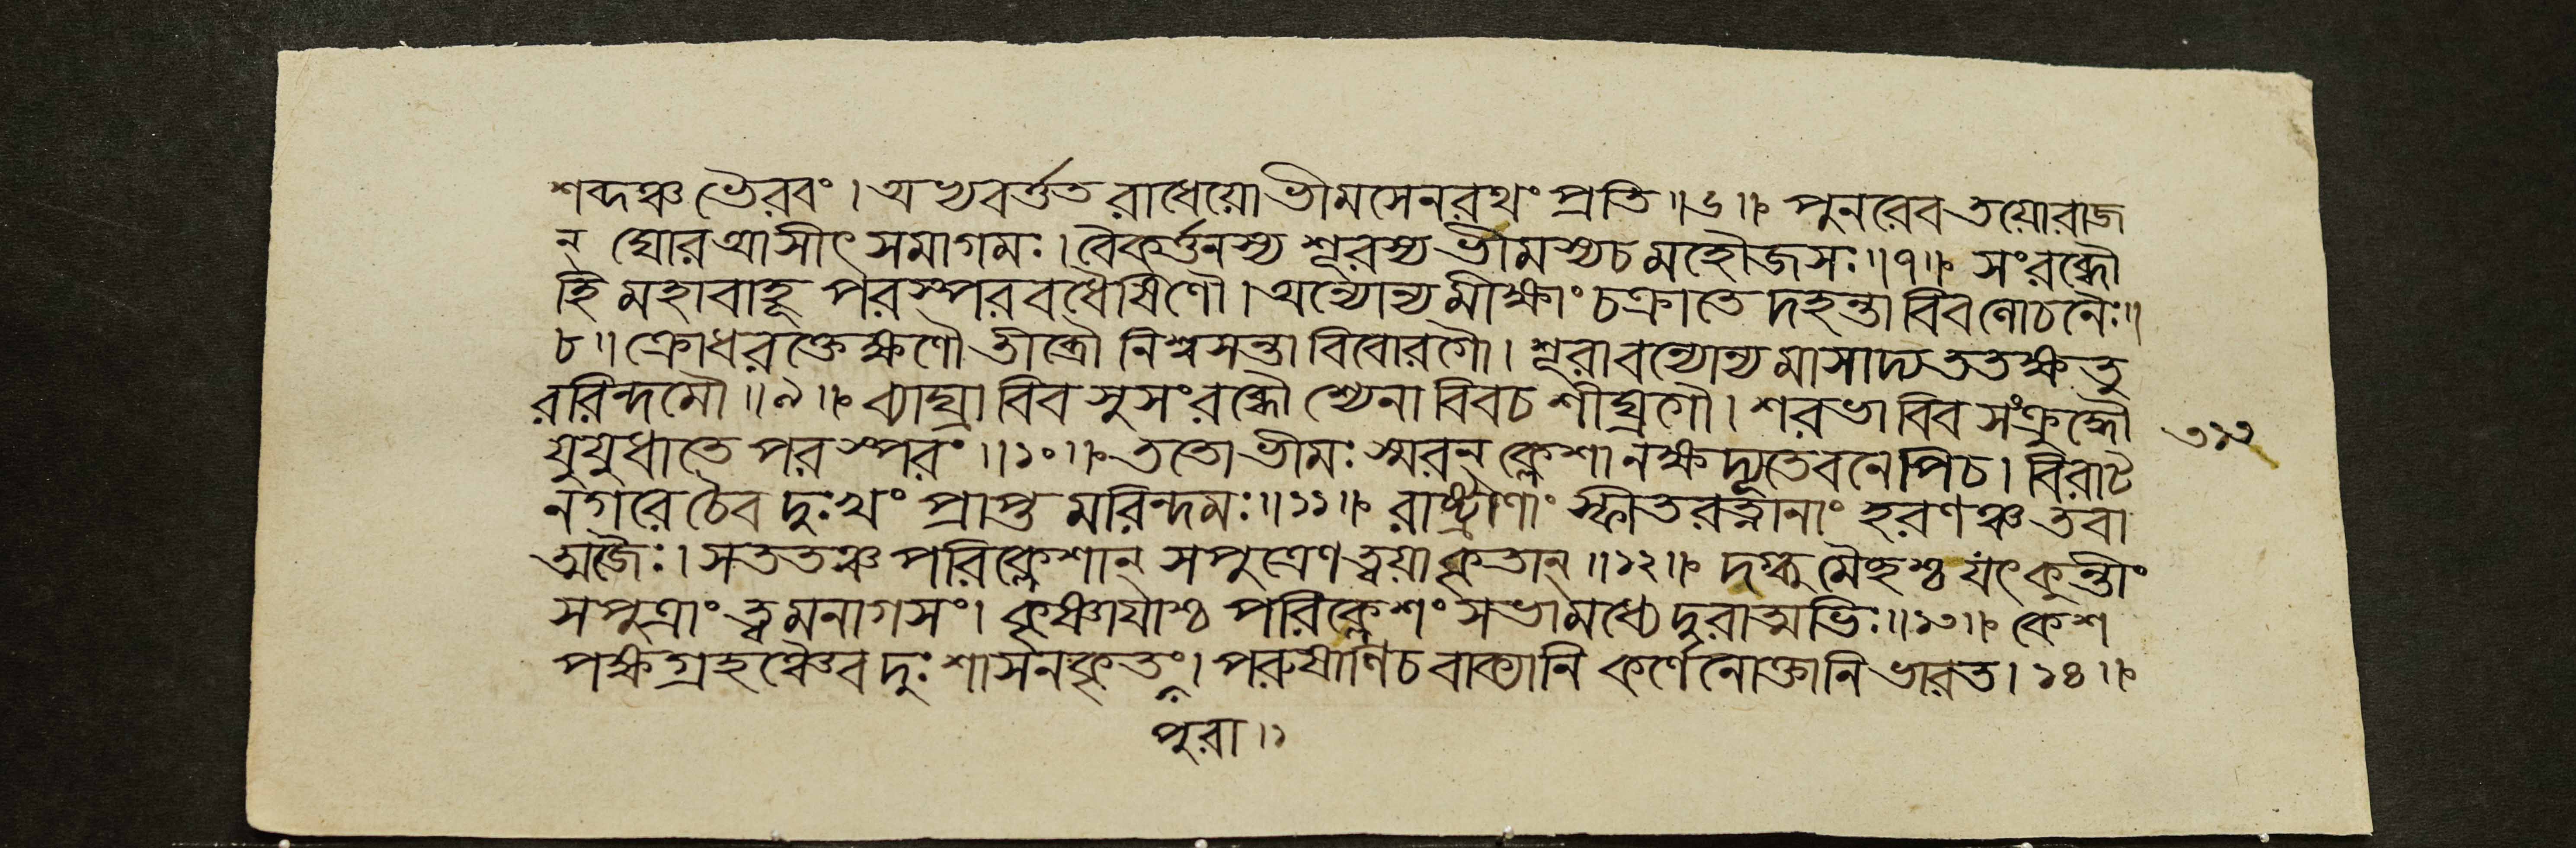 শব্দঞ্চ ভৈরবং । অভ্যবর্ত্তত রাধেয়ো ভীমসেনরথং প্রতি ॥ ৬ ॥ পুনরেব তয়োরাজ
ন্ ঘোর আসীৎ সমাগমঃ । বৈকর্ত্তনস্য শূরস্য ভীমস্য চ মহৌজসঃ ॥ ৭ ॥ সংরব্ধৌ
হি মহাবাহূ পরস্পরবধৈষিণৌ । অন্যোন্যমীক্ষাং চক্রাতে দহন্তাবিবলোচনৈঃ ॥
৮ ॥ ক্রোধরক্তেক্ষণৌ তীব্রৌ নিশ্বসন্তাবিবোরগৌ । শূরাবন্যোন্যমাসাদ্য ততক্ষতু
ররিন্দমৌ ॥ ৯ ॥ ব্যাঘ্রাবিব সুসংরব্ধৌ শ্যেনাবিব চ শীঘ্রগৌ । শরভাবিব সংক্রুদ্ধৌ
যুযুধাতে পরস্পরং ॥ ১০ ॥ ততো ভীমঃ স্মরন্ ক্লেশানক্ষদ্যূতে বনেপি চ । বিরাট
নগরে চৈব দুঃখং প্রাপ্তমরিন্দমঃ ॥ ১১ ॥ রাষ্ট্রাণাং স্ফীতরত্নানাং হরণঞ্চ তবা
ত্মজৈঃ । সততঞ্চ পরিক্লেশান্ সপুত্রেণ ত্বয়া কৃতান্ ॥ ১২ ॥ দগ্ধুমৈহশ্চ যৎ কুন্তীং
সপুত্রাং ত্বমনাগসং । কৃষ্ণায়াশ্চ পরিক্লেশং সভামধ্যে দুরাত্মভিঃ ॥ ১৩ ॥ কেশ
পক্ষগ্রহঞ্চৈব দুঃশাসনকৃতং । পরুষাণি চ বাক্যানি কর্ণেনোক্তানি ভারত । ১৪ ॥
পুরা ॥ ১